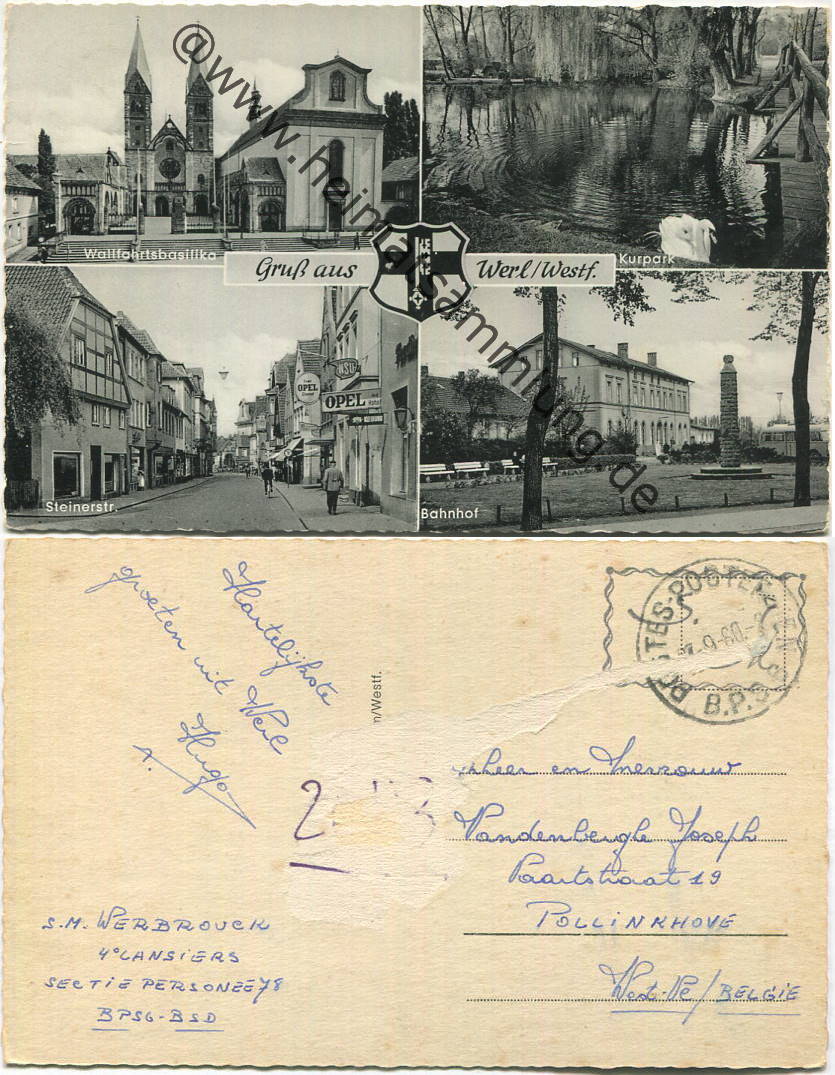 @www.heimatsammlung.de
Wallfahrtsbasilika
Kurpark
Gruß aus Werl/Westf.
OPEL
OPEL
Steinerstr.
Bahnhof
Hartelijkste
groeten uit Werl
Hugo
POSTES-POSTERIJEN
-9-60
B.P.S
n/Westf.
heer en Mevrouw
Vandenberghe Joseph
19
POLLINKHOVE
West-Vl/BELGIE
S.M. WERBROUCK
4° LANSIERS
SECTIE PERSONEEL
BPS6-BSD